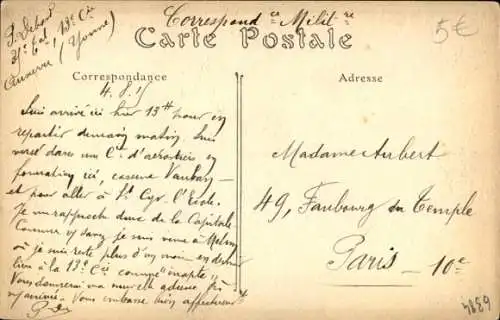 Correspond ce Milit re
13e Cie
Auxerre (Yonne)
5€
Carte Postale
Correspondance
Adresse
4.8.15
Suis arrivé ici hier 13H pour en
repartir demain matin. Suis
versé dans un Cie d'aérostiers en
formation ici, caserne Vauban
et pour aller à St Cyr l'Ecole.
Je me rapproche donc de la Capitale.
je suis venu à Melun
où je suis resté plus d'un mois en dernier
lieu à la 13e Cie comme "inapte"
Vous donnerai ma nouvelle adresse
Vous embrasse bien affectueus
Madame Aubert
49, Faubourg du Temple
Paris - 10e